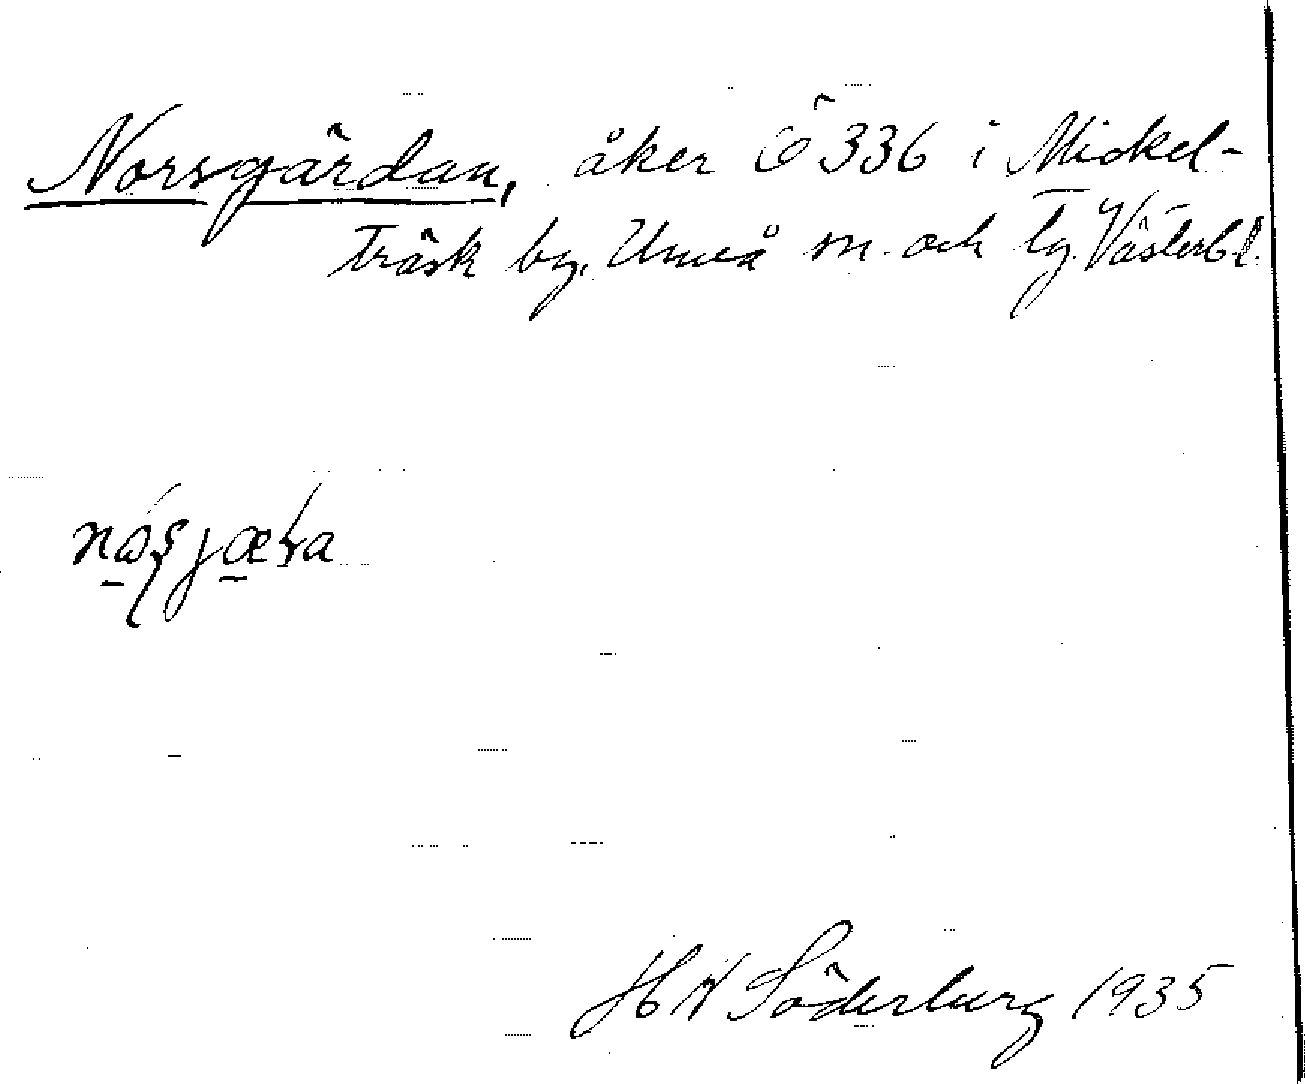 Norsgärdan, åker Ö 336 i Mickel-
träsk by, Umeå sn. och tg. Västerb. l.
H N Söderberg 1935